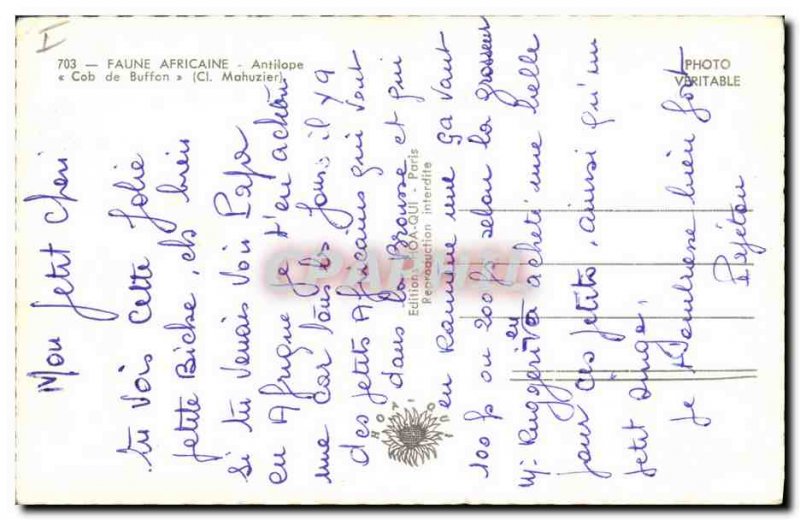 703 — FAUNE AFRICAINE - Antilope
« Cob de Buffon » (Cl. Mahuzier)
PHOTO
VÉRITABLE
Editions HOA-QUI - Paris
Reproduction interdite
HOA QUI
CPARAMA
I
Mon petit chéri
tu vois cette jolie
petite Biche, eh bien
si tu venais voir Papa
en Afrique je t'en achète
une car tous les jours il y a
des petits Africains qui vont
dans la Brousse et qui
en Ramène une ça vaut
100 f ou 200 f selon la grosseur
Mr Ruggeri en a acheté une belle
pour ces petits, ainsi qu'un
petit singe.
je t'embrasse bien fort